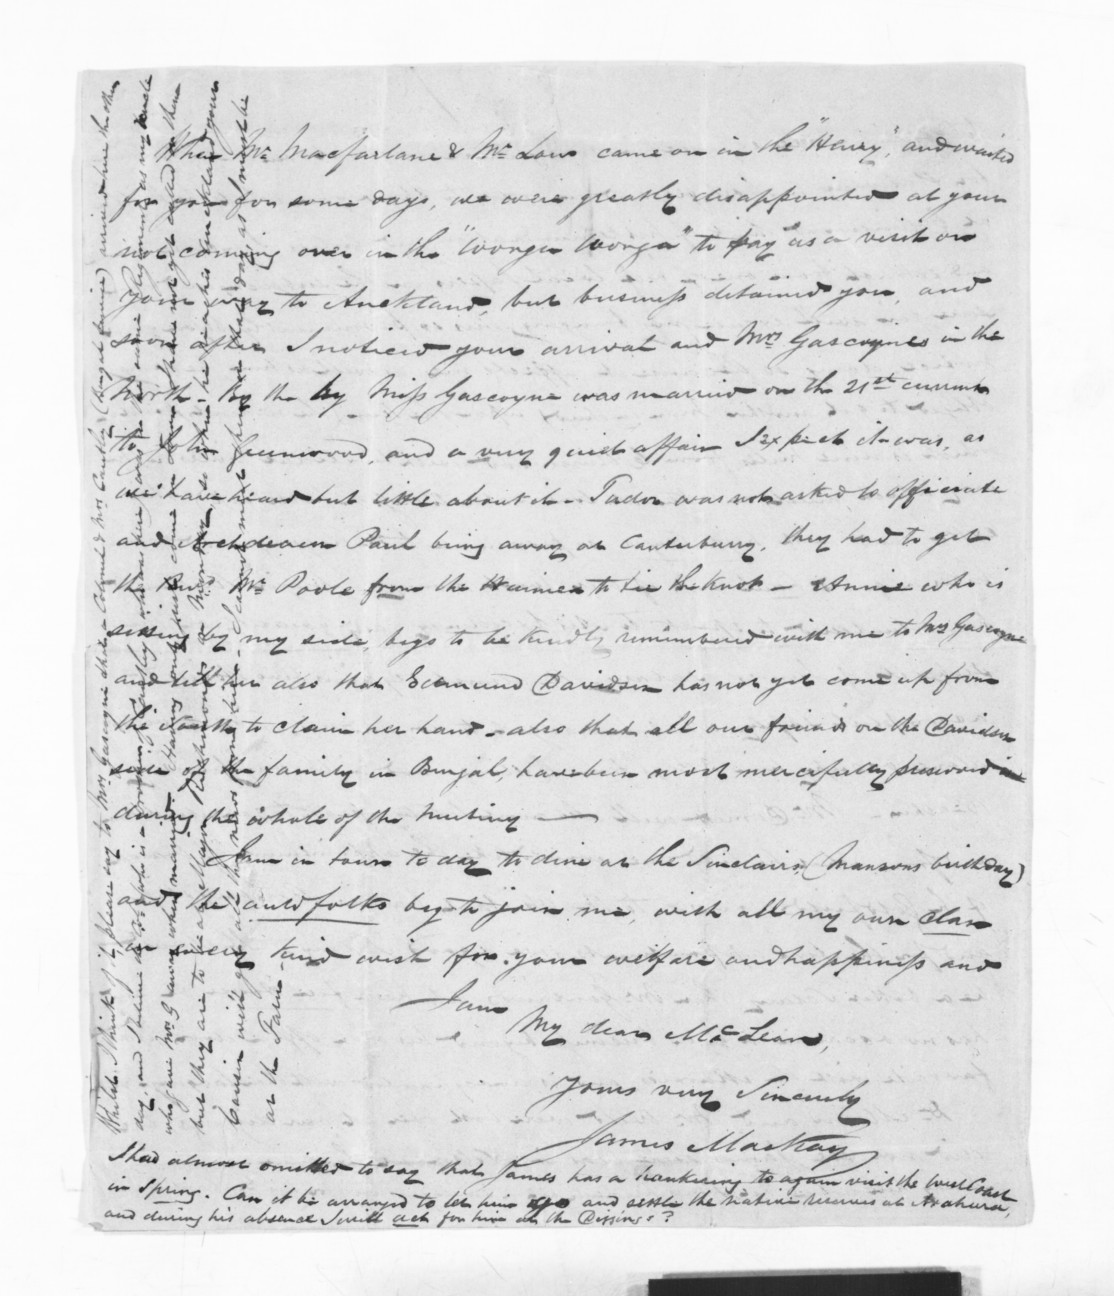 When Mr. Macfarlane & Mr. Law came on in the "Henry", and waited
for you for some days, we were greatly disappointed at your
not coming over in the "Wonga Wonga" to pay us a visit on
your way to Auckland, but business detained you, and
soon after I noticed your arrival and Mrs Gascoynes in the
North. By the by Miss Gascoyne was married on the 21st current
to John Greenwood, and a very quiet affair I expect it was, as
we have heard but little about it - Tudor was not asked to officiate
and Archdeacon Paul being away at Canterbury, they had to get
the Revd. Mr Poole from the Waimea to tie the Knot - Annie who is
sitting by my side, begs to be kindly remembered with me to Mrs Gascoyne
and tell her also that Edmund Davidson has not yet come up from
the South to claim her hand - also that all our friends on the Davidson
side of the family in Bengal, have been most mercifully preserved
during the whole of the Mutiny —
I am in town to day to dine at the Sinclairs (Mansons birthday)
and the auld folks beg to join me, with all my own clan
in every kind wish for your welfare and happiness and
I am
My dear McLean,
Yours very Sincerely
James Mackay
I had almost omitted to say that James has a hankering to again visit the West Coast
in Spring. Can it be arranged to let him go and settle the native reserves at Arahura,
and during his absence I will act for him at the Diggings?
Whilst I think of it please say to Mrs Gascoyne that a Colonel & Mrs (Bengal Service) arrived here the other
day, and
who are Mrs
but they are to
Cousin will
at the Farm -